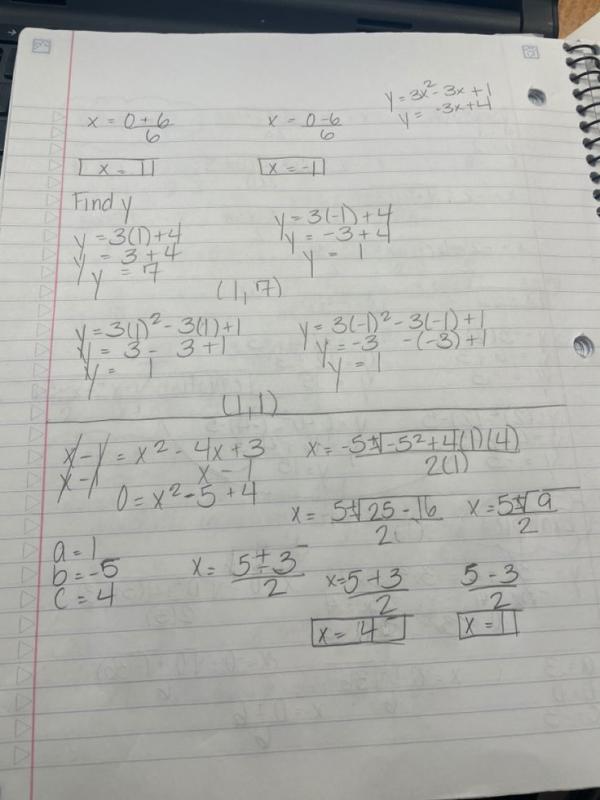 y = 3x² - 3x + 1
y = -3x + 4
x = 0 + 6 / 6
x = 0 - 6 / 6
x = 1
x = -1
Find y
y = 3(1) + 4
y = 3 + 4
y = 7
y = 3(-1) + 4
y = -3 + 4
y = 1
(1, 7)
y = 3(1)² - 3(1) + 1
y = 3 - 3 + 1
y = 1
y = 3(-1)² - 3(-1) + 1
y = -3 - (-3) + 1
y = 1
(1, 1)
x - 1 = x² - 4x + 3
x - 1 x - 1
0 = x² - 5 + 4
a = 1
b = -5
c = 4
x = -5 ± √-5² + 4(1)(4) / 2(1)
x = 5 ± √25 - 16 / 2
x = 5 ± √9 / 2
x = 5 ± 3 / 2
x = 5 + 3 / 2
5 - 3 / 2
x = 4
x = 1